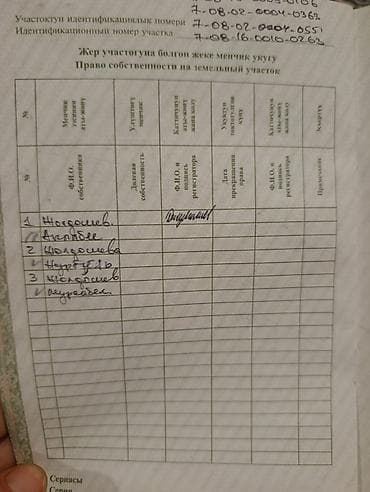 7-08-02-0004-0362
Участоктун идентификациялык номери 7-08-02-0004-0551
Идентификационный номер участка 7-08-16-0010-0263
Жер участогуна болгон жеке менчик укугу
Право собственности на земельный участок
№ Менчик ээсинин аты-жөнү Үлүштүү менчик Каттоочунун аты-жөнү жана колу Укуктун токтотулган күнү Каттоочунун аты-жөнү жана колу Эскертүү
№ Ф.И.О. собственника Долевая собственность Ф.И.О. и подпись регистратора Дата прекращения права Ф.И.О. и подпись регистратора Примечание
1 Жолдошев
2 Жолдошева
Нургуль
3 Жолдошев
Сериясы
Серия